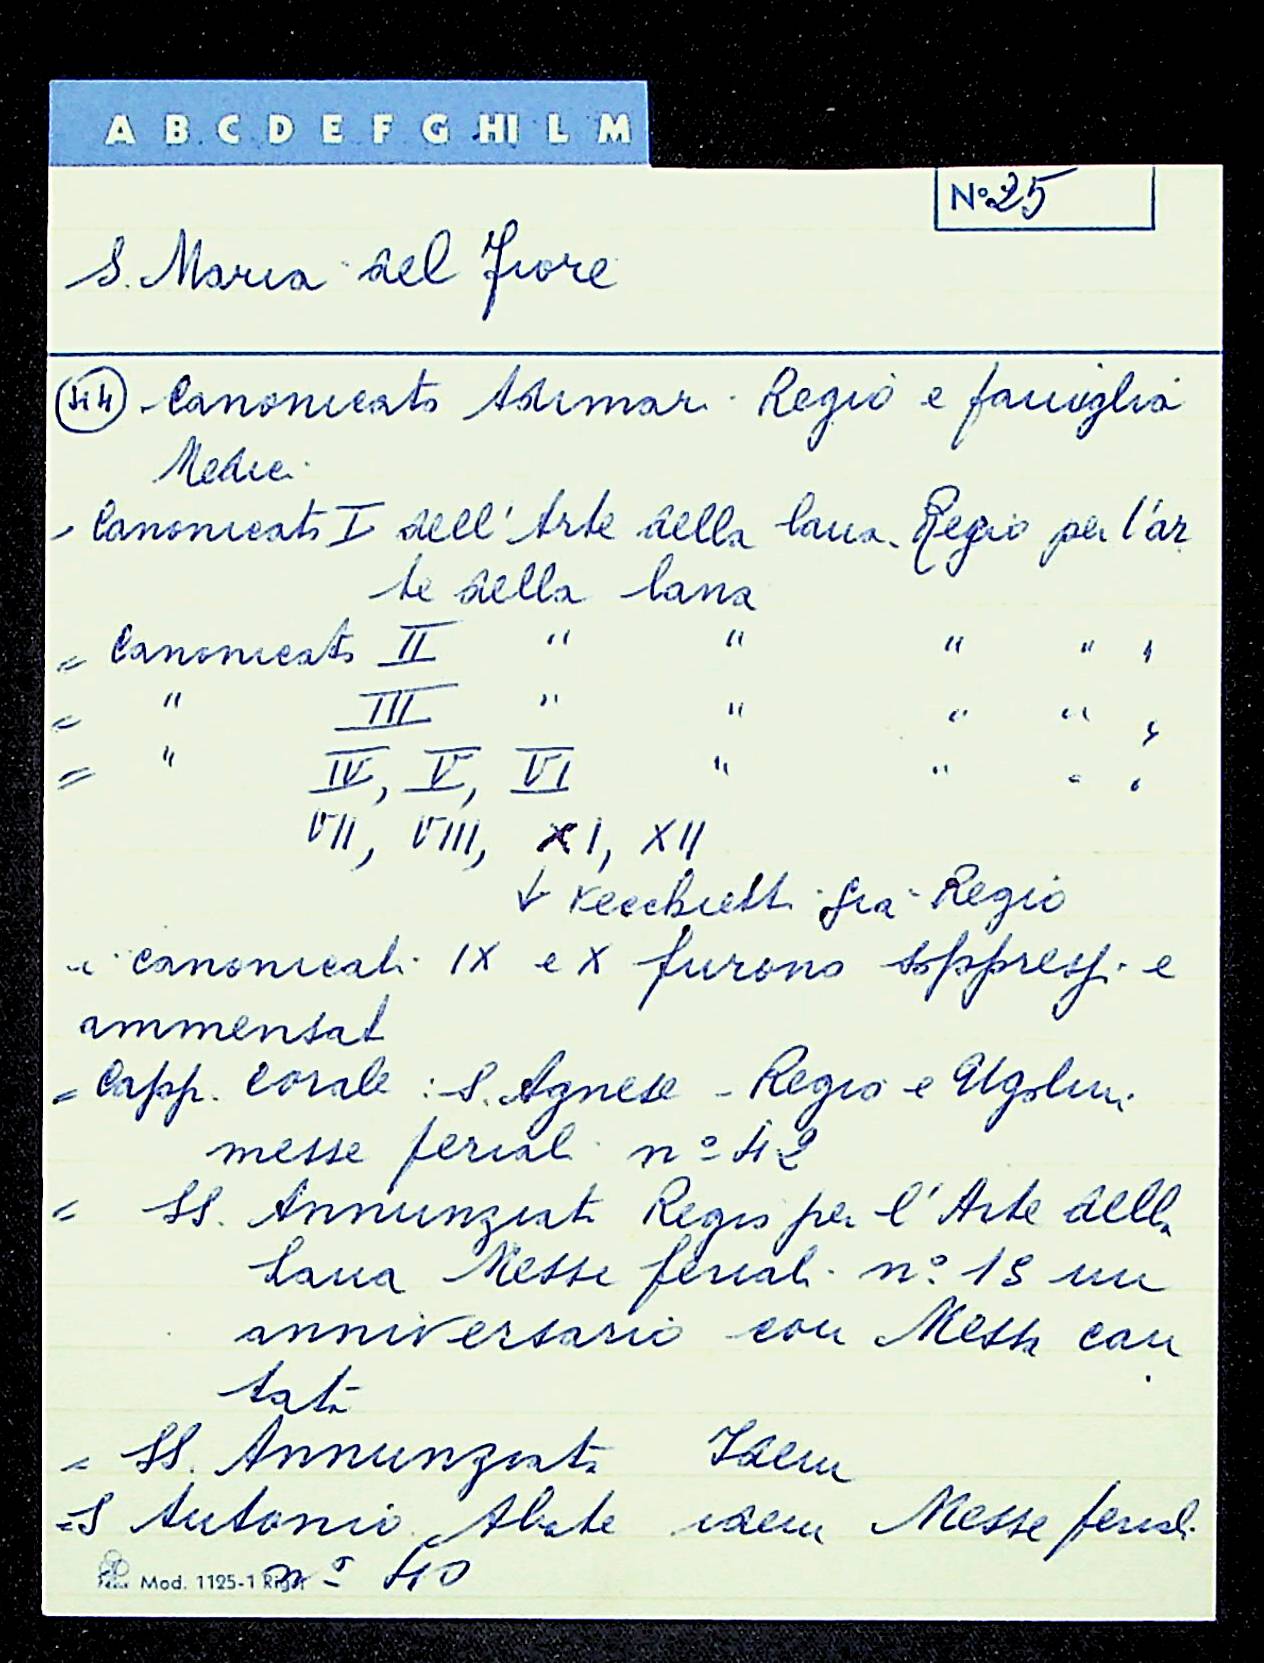 A B C D E F G HI L M
N° 25
S. Maria del Fiore
Canonicato Adimari. Regio e famiglia
Medici
- Canonicato I dell'Arte della lana. Regio per l'ar
te della lana
= Canonicato II " " " " "
= " III " " " " "
= " IV, V, VI " " " "
VII, VIII, XI, XII
↓ Vecchietti già Regio
i canonicati IX e X furono soppressi e
ammensati
= Capp. Corale : S. Agnese - Regio e Ugolini
messe feriali n° 42
= SS. Annunziata Regio per l'Arte della
Lana Messe feriali n° 18 un
anniversario con Messa can
tata
= SS. Annunziata Idem
= S Antonio Abate idem Messe feriali
n° 40
Mod. 1125-1 Righi